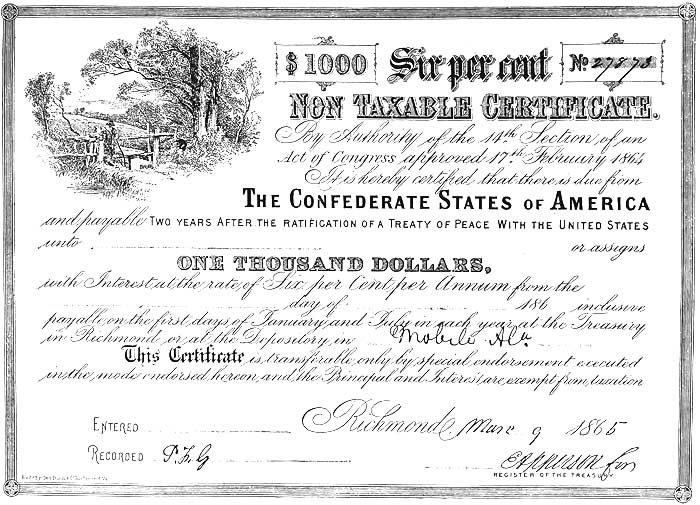 $1000 Six per cent No 27873
NON TAXABLE CERTIFICATE.
By Authority of the 14th Section of an
Act of Congress approved 17th February 1864
It is hereby certified that there is due from
THE CONFEDERATE STATES OF AMERICA
and payable TWO YEARS AFTER THE RATIFICATION OF A TREATY OF PEACE WITH THE UNITED STATES
unto or assigns
ONE THOUSAND DOLLARS,
with Interest at the rate of Six per Cent per Annum from the
day of 186 inclusive
payable on the first days of January and July in each year at the Treasury
in Richmond or at the Depository in Mobile Ala
This Certificate is transferable only by special endorsement executed
in the mode endorsed hereon and the Principal and Interest are exempt from taxation
ENTERED Richmond Mar 9 1865
RECORDED
REGISTER OF THE TREASURY